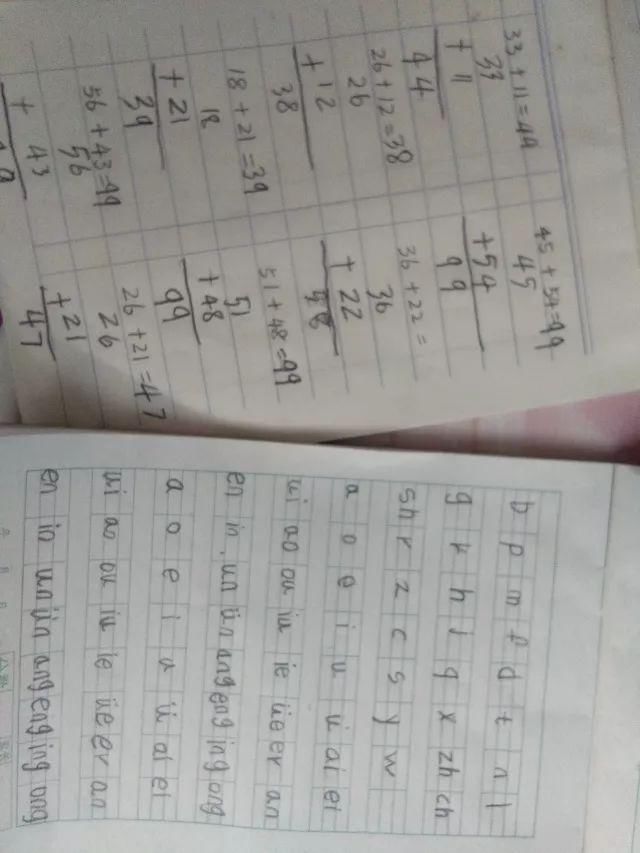 33+11=44 45+54=99
33 45
+11 +54
44 99
26+12=38 36+22=
26 36
+12 +22
38 58
18+21=39 51+48=99
18 51
+21 +48
39 99
56+43=99 26+21=47
56 26
+43 +21
47
b p m f d t n l
g k h j q x zh ch
sh r z c s y w
a o e i u ü ai ei
ui ao ou iu ie üe er an
en in un ün ang eng ing ong
a o e i u ü ai ei
ui ao ou iu ie üe er an
en in un ün ang eng ing ong